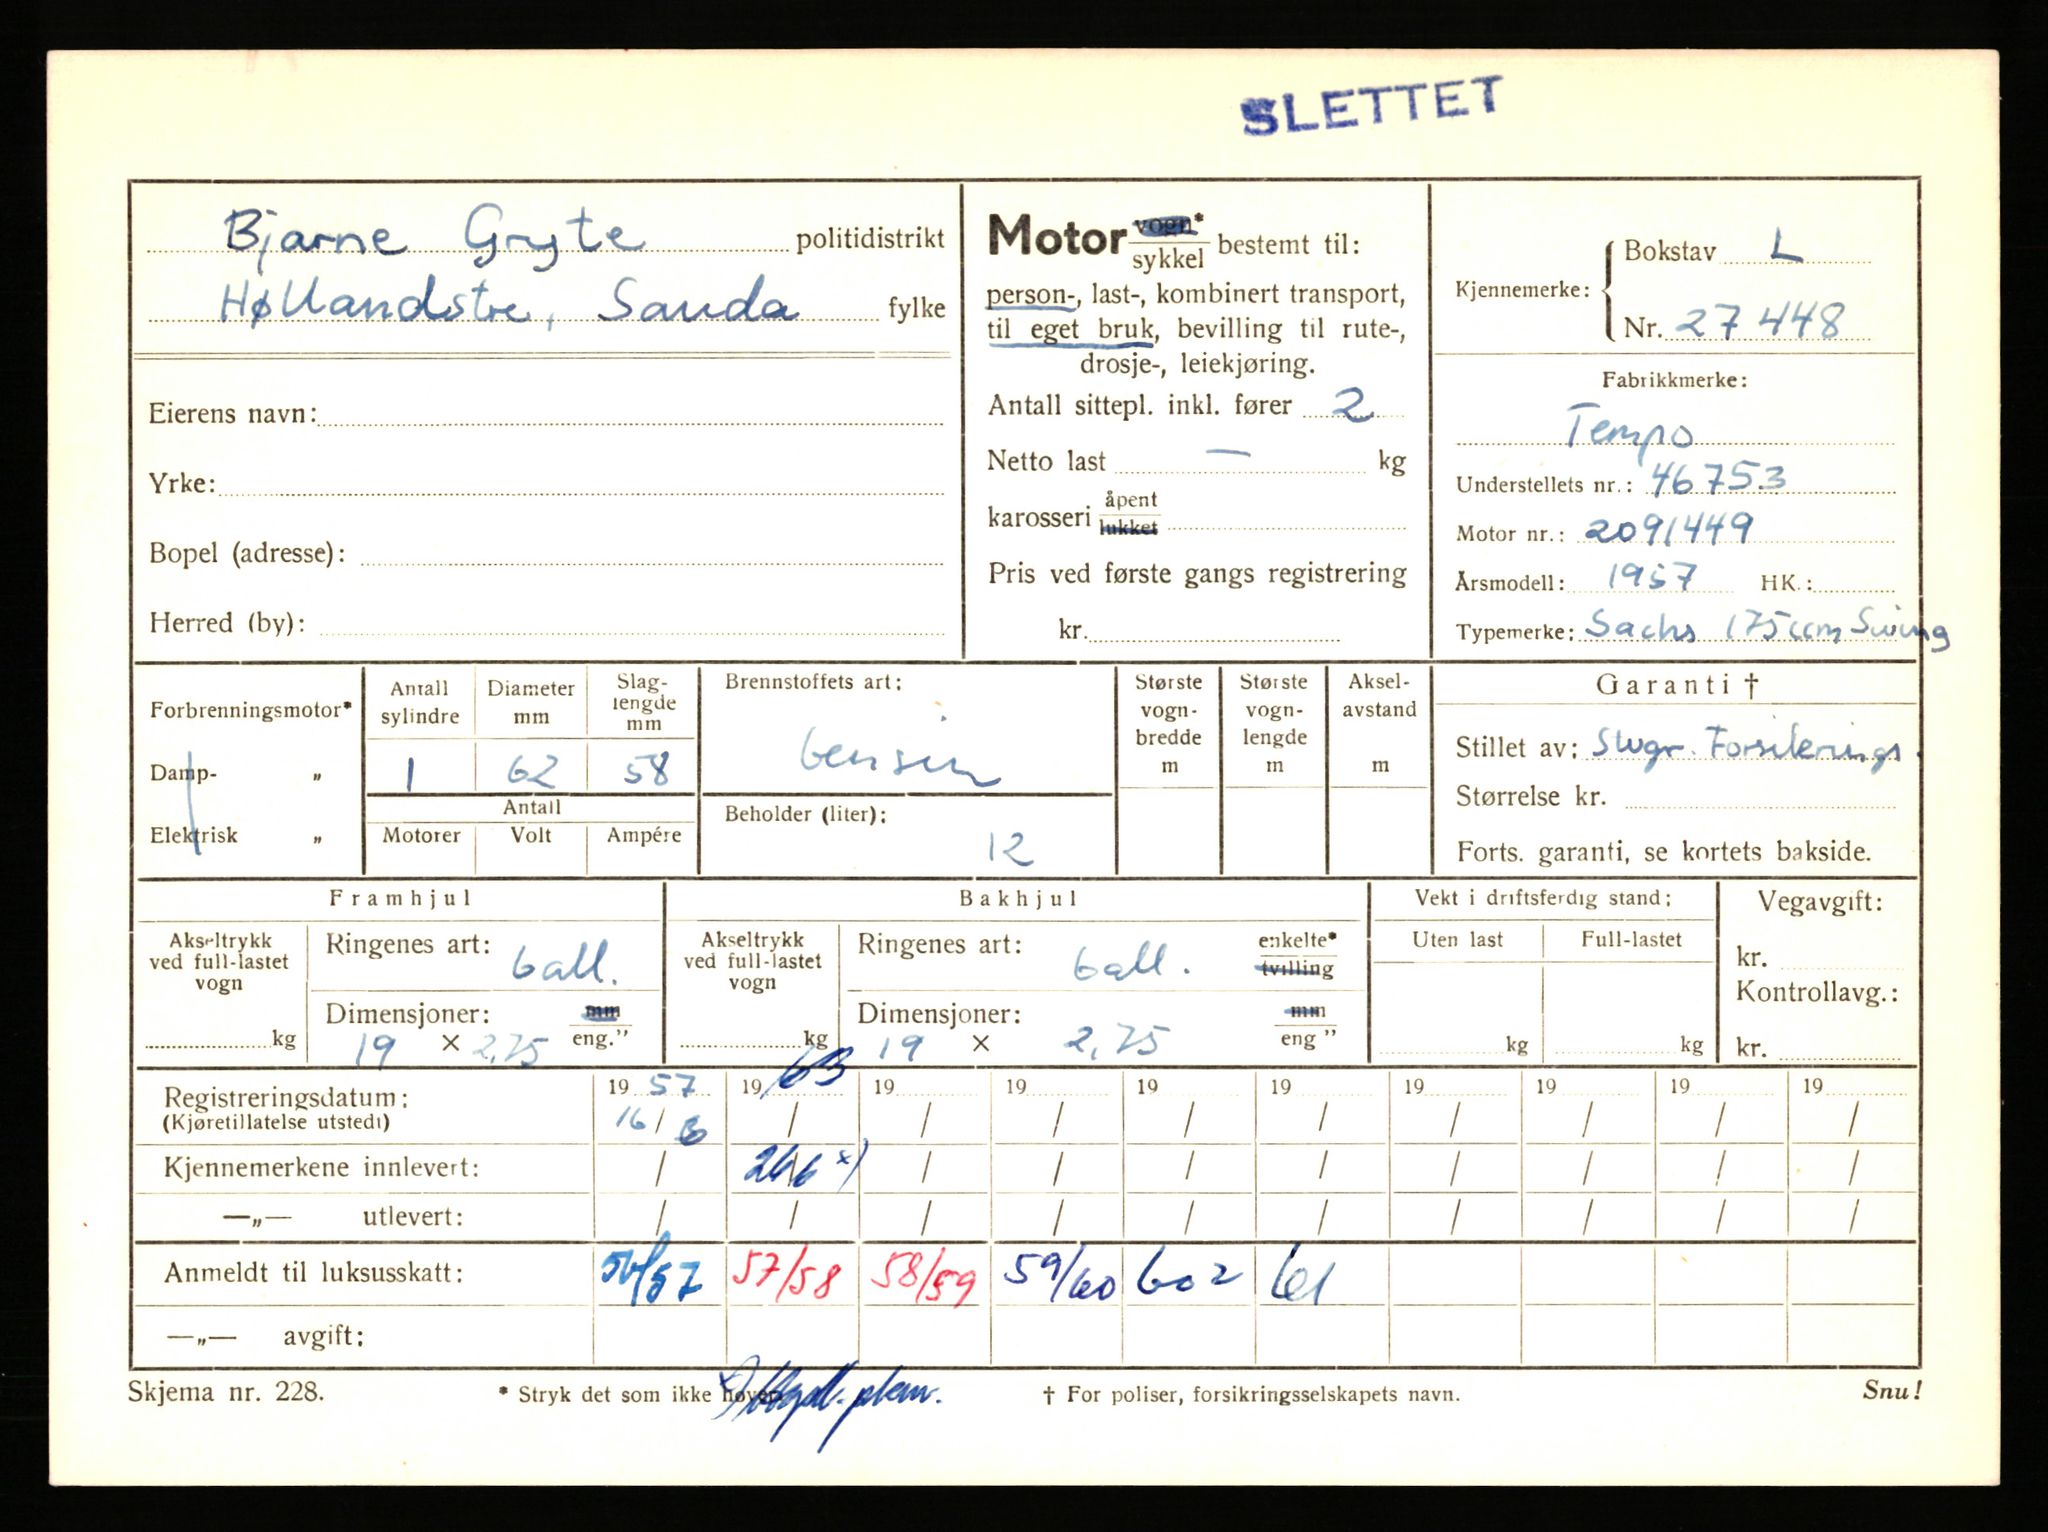 SLETTET
Bjarne Gryte politidistrikt
Høllandstre, Sauda fylke
Eierens navn:
Yrke:
Bopel (adresse):
Herred (by):
Motor vogn* / sykkel bestemt til:
person-, last-, kombinert transport,
til eget bruk, bevilling til rute-,
drosje-, leiekjøring.
Antall sittepl. inkl. fører 2
Netto last — kg
karosseri åpent / lukket
Pris ved første gangs registrering
kr.
Kjennemerke: Bokstav L
Nr. 27448
Fabrikkmerke:
Tempo
Understellets nr.: 46753
Motor nr.: 2091449
Årsmodell: 1957 HK.:
Typemerke: Sachs 175 ccm Swing
Forbrenningsmotor*
Damp- „
Elektrisk „
Antall sylindre
Diameter mm
Slag-
lengde
mm
1 62 58
Antall
Motorer Volt Ampére
Brennstoffets art:
bensin
Beholder (liter):
12
Største
vogn-
bredde
m
Største
vogn-
lengde
m
Aksel-
avstand
m
Garanti †
Stillet av: Forsikrings.
Størrelse kr.
Forts. garanti, se kortets bakside.
Framhjul
Akseltrykk
ved full-lastet
vogn
kg
Ringenes art: ball.
Dimensjoner: mm / eng.”
19 × 2,75
Bakhjul
Akseltrykk
ved full-lastet
vogn
kg
Ringenes art: ball. enkelte* / tvilling
Dimensjoner: mm / eng ”
19 × 2,75
Vekt i driftsferdig stand:
Uten last Full-lastet
kg kg
Vegavgift:
kr.
Kontrollavg.:
kr.
Registreringsdatum: 19 57 19 63 19 19 19 19 19 19 19 19
(Kjøretillatelse utstedt) 16 / 8 / / / / / / / / /
Kjennemerkene innlevert: / 24/6 x) / / / / / / / /
—„— utlevert: / / / / / / / / / /
Anmeldt til luksusskatt: 56/57 57/58 58/59 59/60 602 61
—„— avgift:
Skjema nr. 228. * Stryk det som ikke høver. † For poliser, forsikringsselskapets navn. Snu!